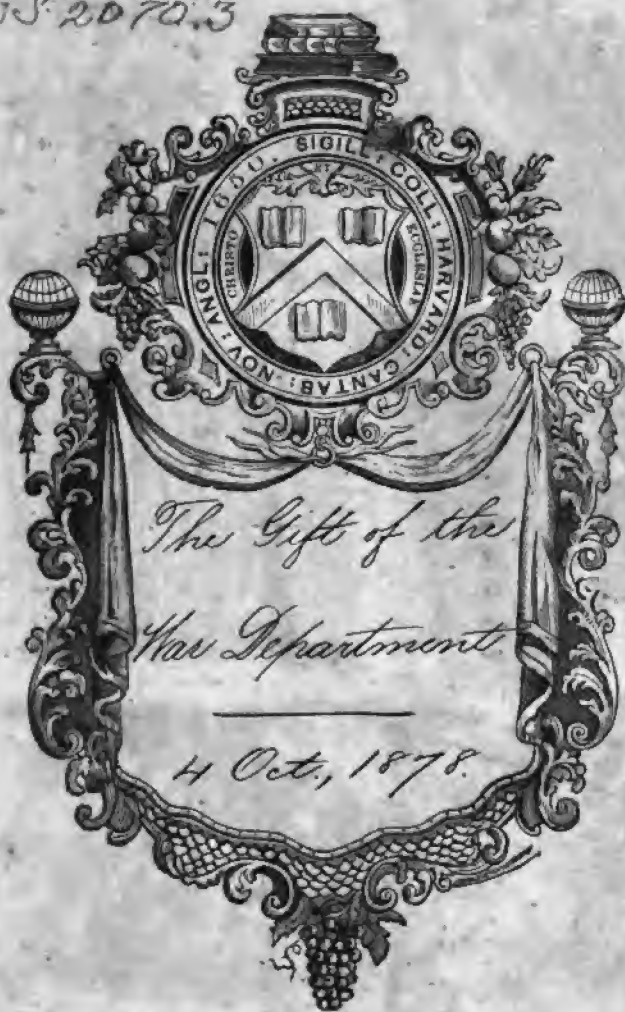 US.2070.3
SIGILL: COLL: HARVARD: CANTAB: NOV: ANGL: 1650.
ET
CHRISTO
ECCLESIAE
The Gift of the
War Department.
4 Oct., 1878.